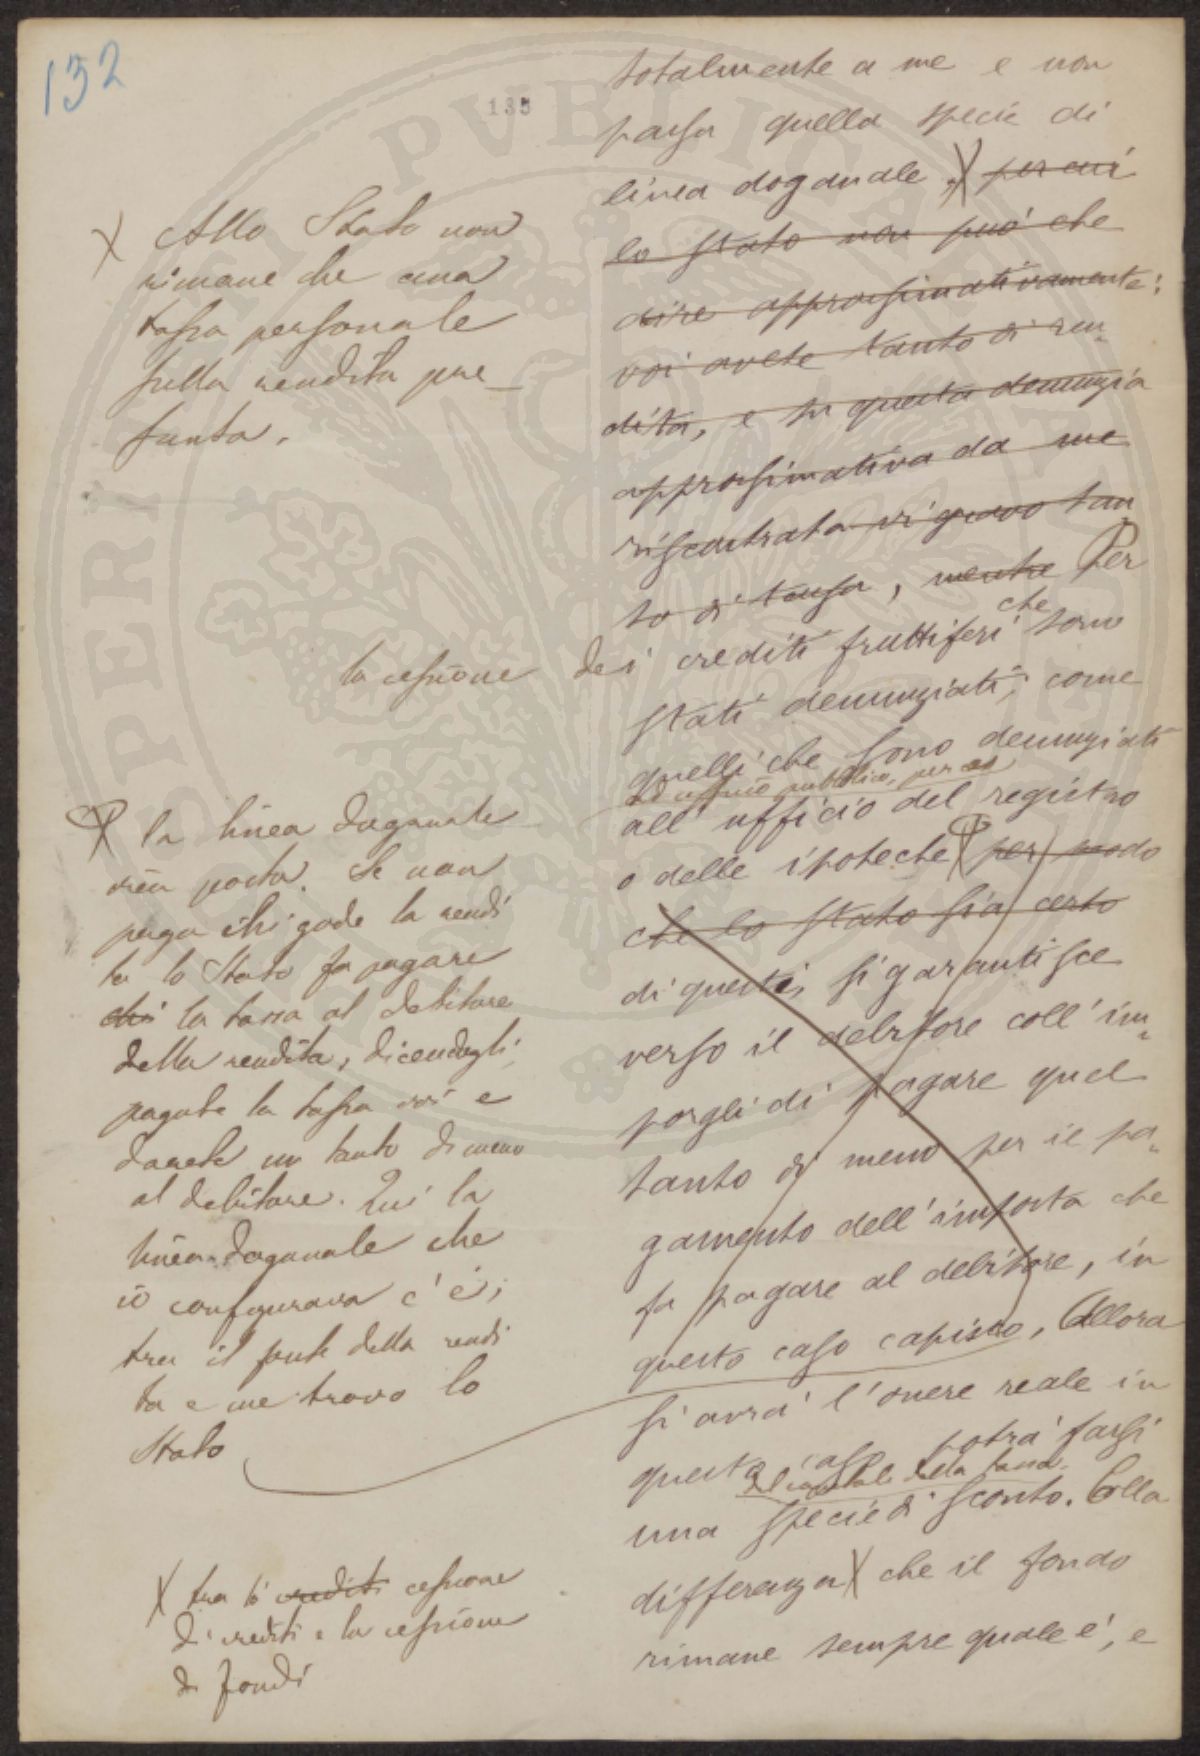 132
135
totalmente a me e non
passa quella specie di
linea doganale, X per cui
lo Stato non può che
dire approssimativamente:
voi avete tanto di ren-
dita, e su questa denunzia
approssimativa da me
riscontrata vi gravo tan-
to di tassa, mentre Per
la cessione dei crediti fruttiferi che sono
stati denunziati, come
quelli che sono denunziati
ad ufficio pubblico, per es
all'ufficio del registro
o delle ipoteche X per modo
che lo Stato sia certo
di questi, si garantisce
verso il debitore coll'im-
porgli di pagare quel
tanto di meno per il pa-
gamento dell'imposta che
fa pagare al debitore, in
questo caso capisco, Allora
si avrà l'onere reale in
questo caso potrà farsi
del capitale della tassa.
una specie di sconto. Colla
differenza X che il fondo
rimane sempre quale è, e
X Allo Stato non
rimane che una
tassa personale
sulla rendita pre-
sunta.
X la linea doganale
vien posta. Se non
paga chi gode la rendi
ta lo Stato fa pagare
chi la tassa al debitore
della rendita, dicendogli,
pagate la tassa voi e
darete un tanto di meno
al debitore. Qui la
linea doganale che
io configurava c'è;
tra il fonte della rendi
ta e me trovo lo
Stato
X tra la crediti cessione
di crediti e la cessione
di fondi
PERITI PVBLICAE